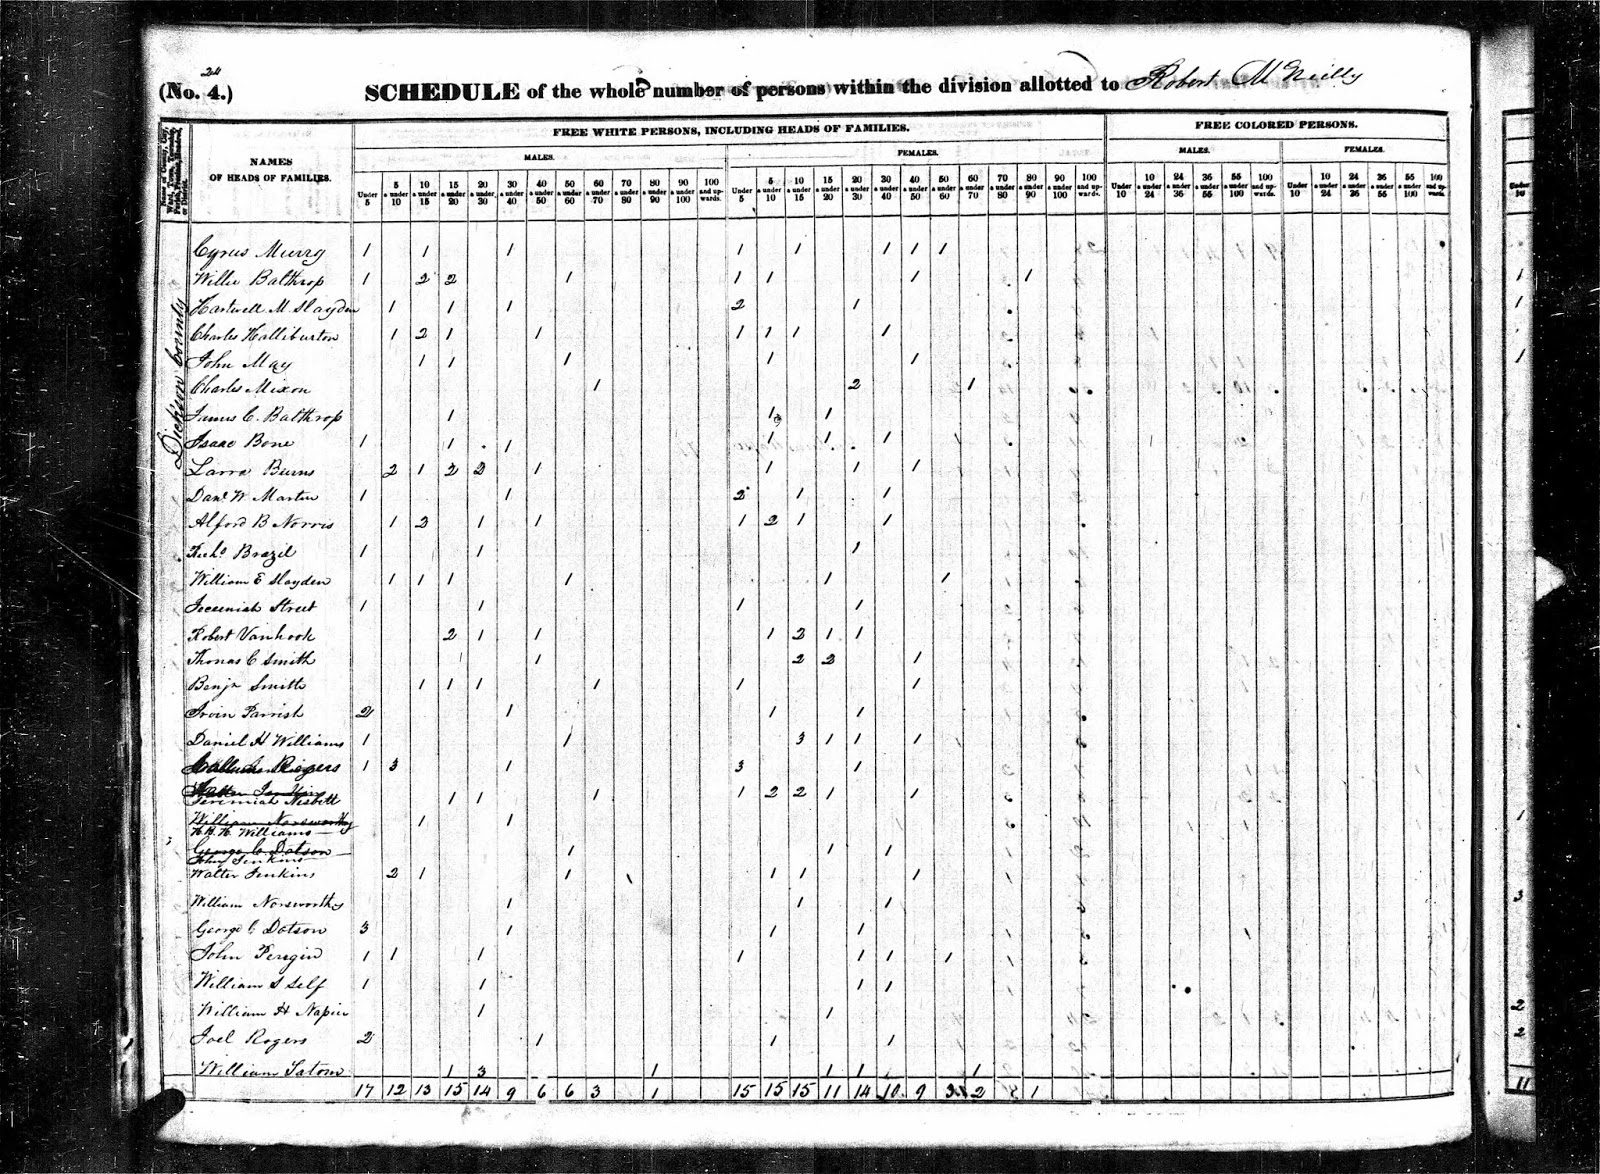 24
(No. 4.) SCHEDULE of the whole number of persons within the division allotted to Robert McNeilly
FREE WHITE PERSONS, INCLUDING HEADS OF FAMILIES. FREE COLORED PERSONS.
MALES. FEMALES. MALES. FEMALES.
NAMES
OF HEADS OF FAMILIES.
Under 5 5 & under 10 10 & under 15 15 & under 20 20 & under 30 30 & under 40 40 & under 50 50 & under 60 60 & under 70 70 & under 80 80 & under 90 90 & under 100 100 and upwards. Under 5 5 & under 10 10 & under 15 15 & under 20 20 & under 30 30 & under 40 40 & under 50 50 & under 60 60 & under 70 70 & under 80 80 & under 90 90 & under 100 100 and upwards. Under 10 10 & under 24 24 & under 36 36 & under 55 55 & under 100 100 and upwards. Under 10 10 & under 24 24 & under 36 36 & under 55 55 & under 100 100 and upwards.
Dickson County
Cyrus Murry 1 1 1 1 1 1 1 1
Willie Balthrop 1 2 2 1 1 1 1 1
Hartwell M Slayden 1 1 1 2 1
Charles Halliburton 1 2 1 1 1 1 1 1
John May 1 1 1 1 1
Charles Mixon 1 2 1
James C. Balthrop 1 1 1
Isaac Bone 1 1 1 1 1 1
Burns 2 1 2 2 1 1 1 1
Danl W Martin 1 1 2 1 1
Alford B Norris 1 2 1 1 1 2 1 1
Richd Brazil 1 1 1
William E Slayden 1 1 1 1 1 1
Jeremiah Street 1 1 1 1
Robert Vanhook 2 1 1 1 2 1 1
Thomas C Smith 1 1 2 2 1
Benjn Smith 1 1 1 1 1 1
Irvin Parrish 2 1 1 1
Daniel H Williams 1 1 3 1 1 1
Rogers 1 3 1 3 1
Walter Jenkins
Jeremiah Nesbitt 1 1 1 1 2 2 1 1
William Norsworthy
H. H. Williams 1 1
George C Dotson
John Jenkins 1 1 1
Walter Jenkins 2 1 1 1 1 1
William Norsworthy 1 1 1
George C Dotson 3 1 1 1
John 1 1 1 1 1 1 1
William S Self 1 1 1 1
William H Napier 1 1
Joel Rogers 2 1 1 1
William Tatom 1 3 1 1 1 1
17 12 13 15 14 9 6 6 3 1 15 15 15 11 14 10 9 3 2 1
1
1
1
1
3
2
2
11